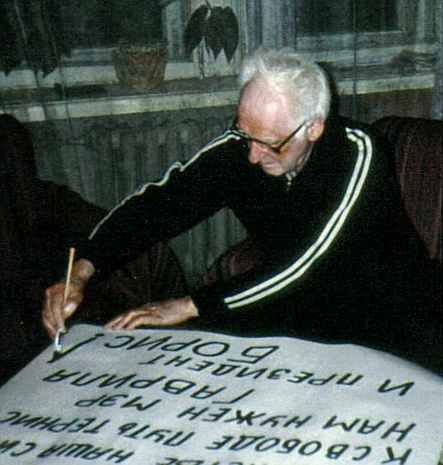 СТЬЕ НАША СИ
К СВОБОДЕ ПУТЬ ТЕРНИС
НАМ НУЖЕН МЭР
ГАВРИЛА
И ПРЕЗИДЕНТ
БОРИС!